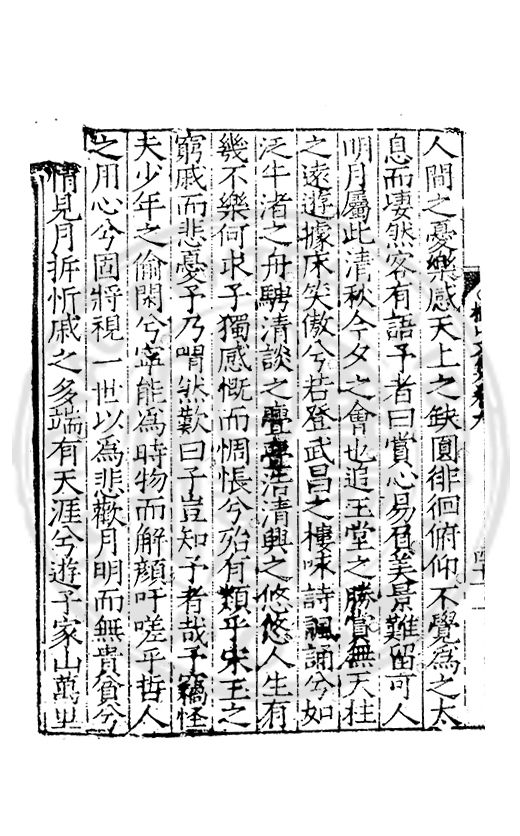 人間之憂樂感天上之缺圓徘徊俯仰不覺為之太
息而悽然客有語予者曰賞心易有美景難留可人
明月屬此清秋今夕之會也追玉堂之勝賞無天柱
之遠遊據床笑傲兮若登武昌之樓咏詩諷誦兮如
泛牛渚之舟騁清談之亹亹浩清興之悠悠人生有
幾不樂何求子獨感慨而惆悵兮殆有類乎宋玉之
窮戚而悲憂予乃喟然歎曰子豈知予者哉予竊怪
夫少年之偷閑兮寧能為時物而解顏吁嗟乎哲人
之用心兮固將視一世以為悲歡月明而無貴貧兮
情見月折忻戚之多端有天涯兮遊子家山萬